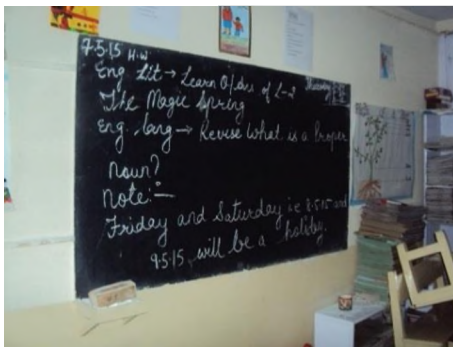 7.5.15 H.W
Eng Lit → Learn Q/Ans of L-2
The Magic Spring
Eng. Lang → Revise What is a Proper
Noun?
Note:-
Friday and Saturday i.e 8.5.15 and
9.5.15 will be a holiday.